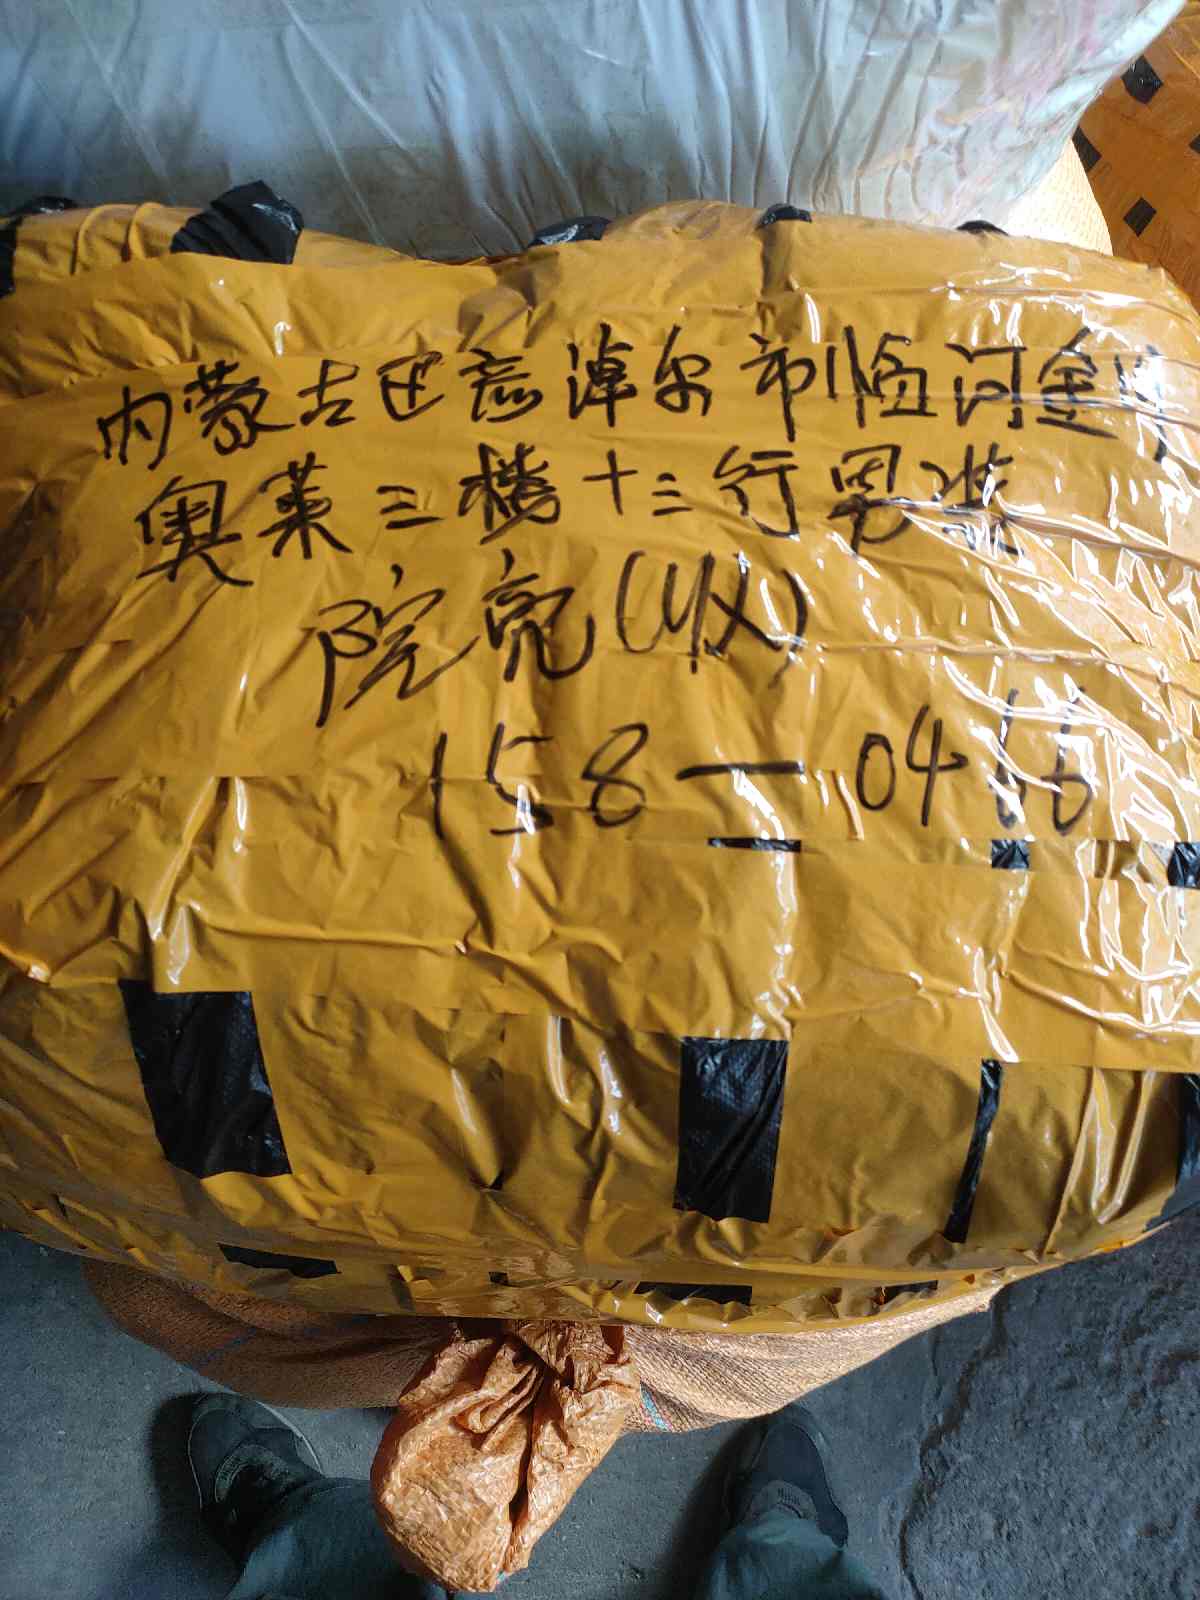 内蒙古巴彦淖尔市临河金牛
奥莱三楼十三行男装
院亮(收)
158一0466